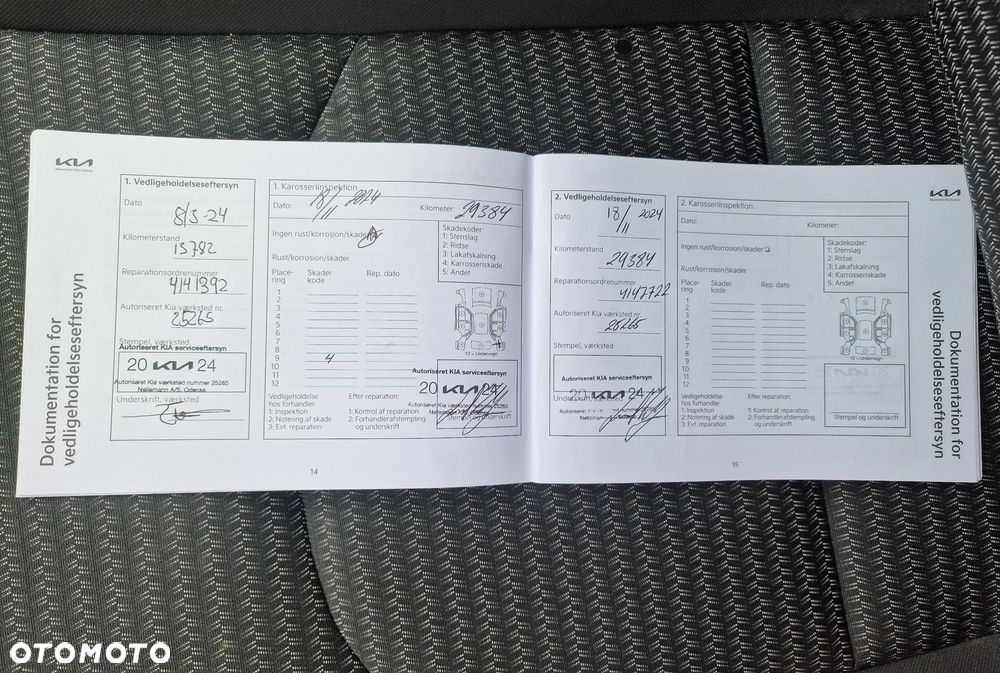 KIA
Movement that inspires
Dokumentation for
vedligeholdelseseftersyn
1. Vedligeholdelseseftersyn
Dato
8/3-24
Kilometerstand
13782
Reparationsordrenummer
4141392
Autoriseret Kia værksted nr.
25265
Stempel, værksted
Autoriseret KIA serviceeftersyn
20 KIA 24
Autoriseret Kia værksted nummer 25265
Nellemann A/S, Odense
Underskrift, værksted
1. Karosseriinspektion
Dato: 18/11 2024
Kilometer: 29384
Ingen rust/korrosion/skader
Rust/korrosion/skader
Place-
ring
Skader
kode
Rep. dato
1
2
3
4
5
6
7
8
9 4
10
11
12
Skadekoder:
1: Stenslag
2: Ridse
3: Lakafskalning
4: Karrosseriskade
5: Andet
12 = Undervogn
Autoriseret KIA serviceeftersyn
20 KIA 24
Autoriseret Kia værksted nummer 25265
Stempel og underskrift
Vedligeholdelse
hos forhandler
1: Inspektion
2: Notering af skade
3: Evt. reparation
Efter reparation:
1: Kontrol af reparation
2: Forhandlerafstempling
og underskrift
14
2. Vedligeholdelseseftersyn
Dato
18/11 2024
Kilometerstand
29384
Reparationsordrenummer
4147722
Autoriseret Kia værksted nr.
25265
Stempel, værksted
Autoriseret KIA serviceeftersyn
20 KIA 24
Underskrift, værksted
2. Karosseriinspektion
Dato:
Kilometer:
Ingen rust/korrosion/skader
Rust/korrosion/skader
Place-
ring
Skader
kode
Rep. dato
1
2
3
4
5
6
7
8
9
10
11
12
Skadekoder:
1: Stenslag
2: Ridse
3: Lakafskalning
4: Karrosseriskade
5: Andet
12 = Undervogn
Vedligeholdelse
hos forhandler
1: Inspektion
2: Notering af skade
3: Evt. reparation
Efter reparation:
1: Kontrol af reparation
2: Forhandlerafstempling
og underskrift
Stempel og underskrift
15
KIA
Movement that inspires
Dokumentation for
vedligeholdelseseftersyn
OTOMOTO